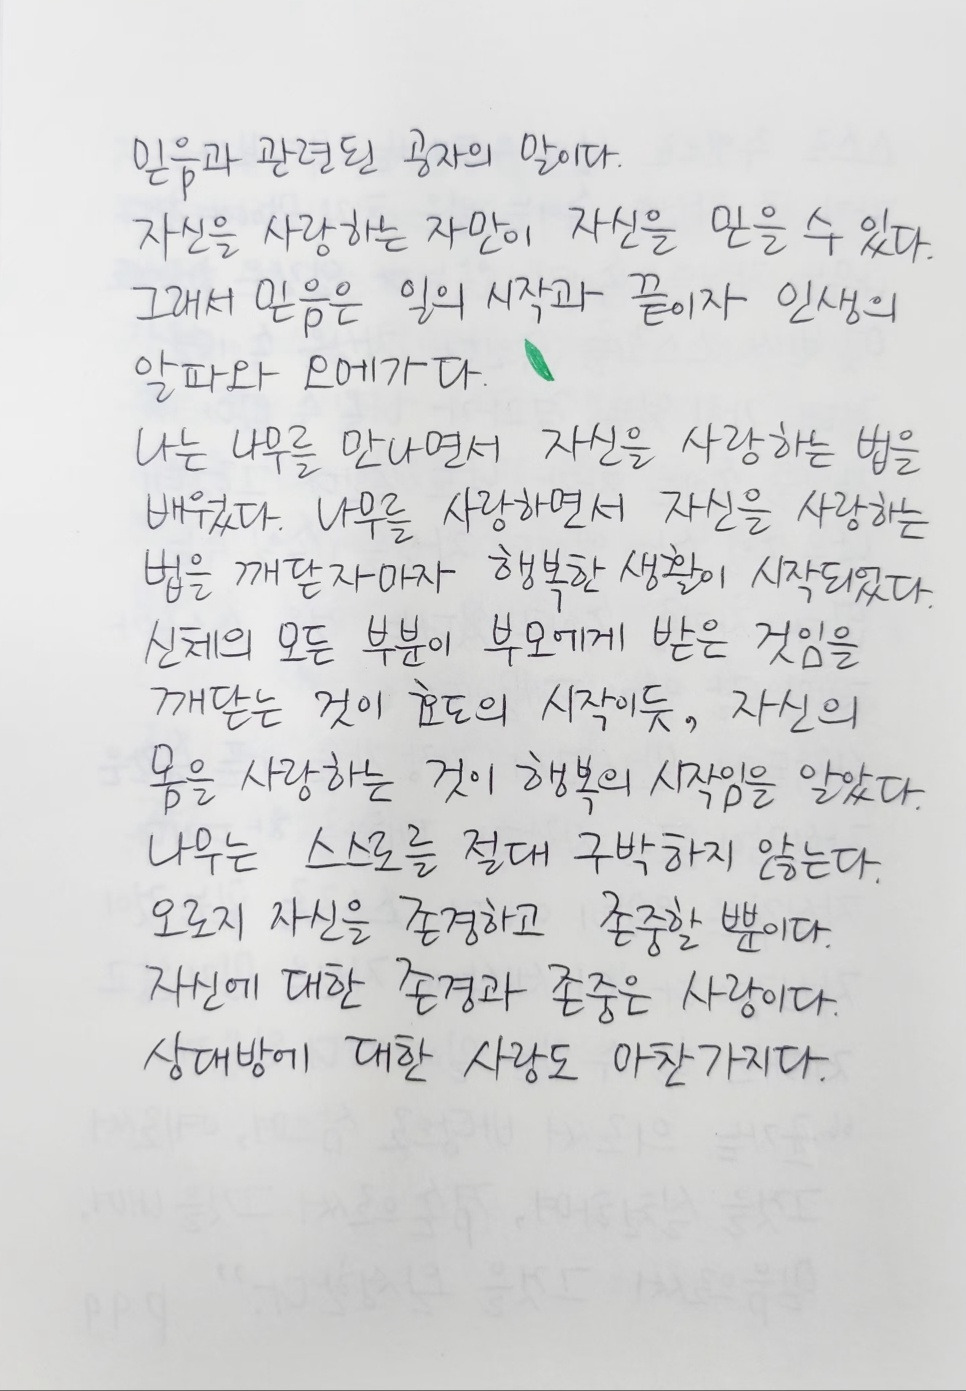 믿음과 관련된 공자의 말이다.
자신을 사랑하는 자만이 자신을 믿을 수 있다.
그래서 믿음은 일의 시작과 끝이자 인생의
알파와 오메가다.
나는 나무를 만나면서 자신을 사랑하는 법을
배웠다. 나무를 사랑하면서 자신을 사랑하는
법을 깨닫자마자 행복한 생활이 시작되었다.
신체의 모든 부분이 부모에게 받은 것임을
깨닫는 것이 효도의 시작이듯, 자신의
몸을 사랑하는 것이 행복의 시작임을 알았다.
나무는 스스로를 절대 구박하지 않는다.
오로지 자신을 존경하고 존중할 뿐이다.
자신에 대한 존경과 존중은 사랑이다.
상대방에 대한 사랑도 마찬가지다.